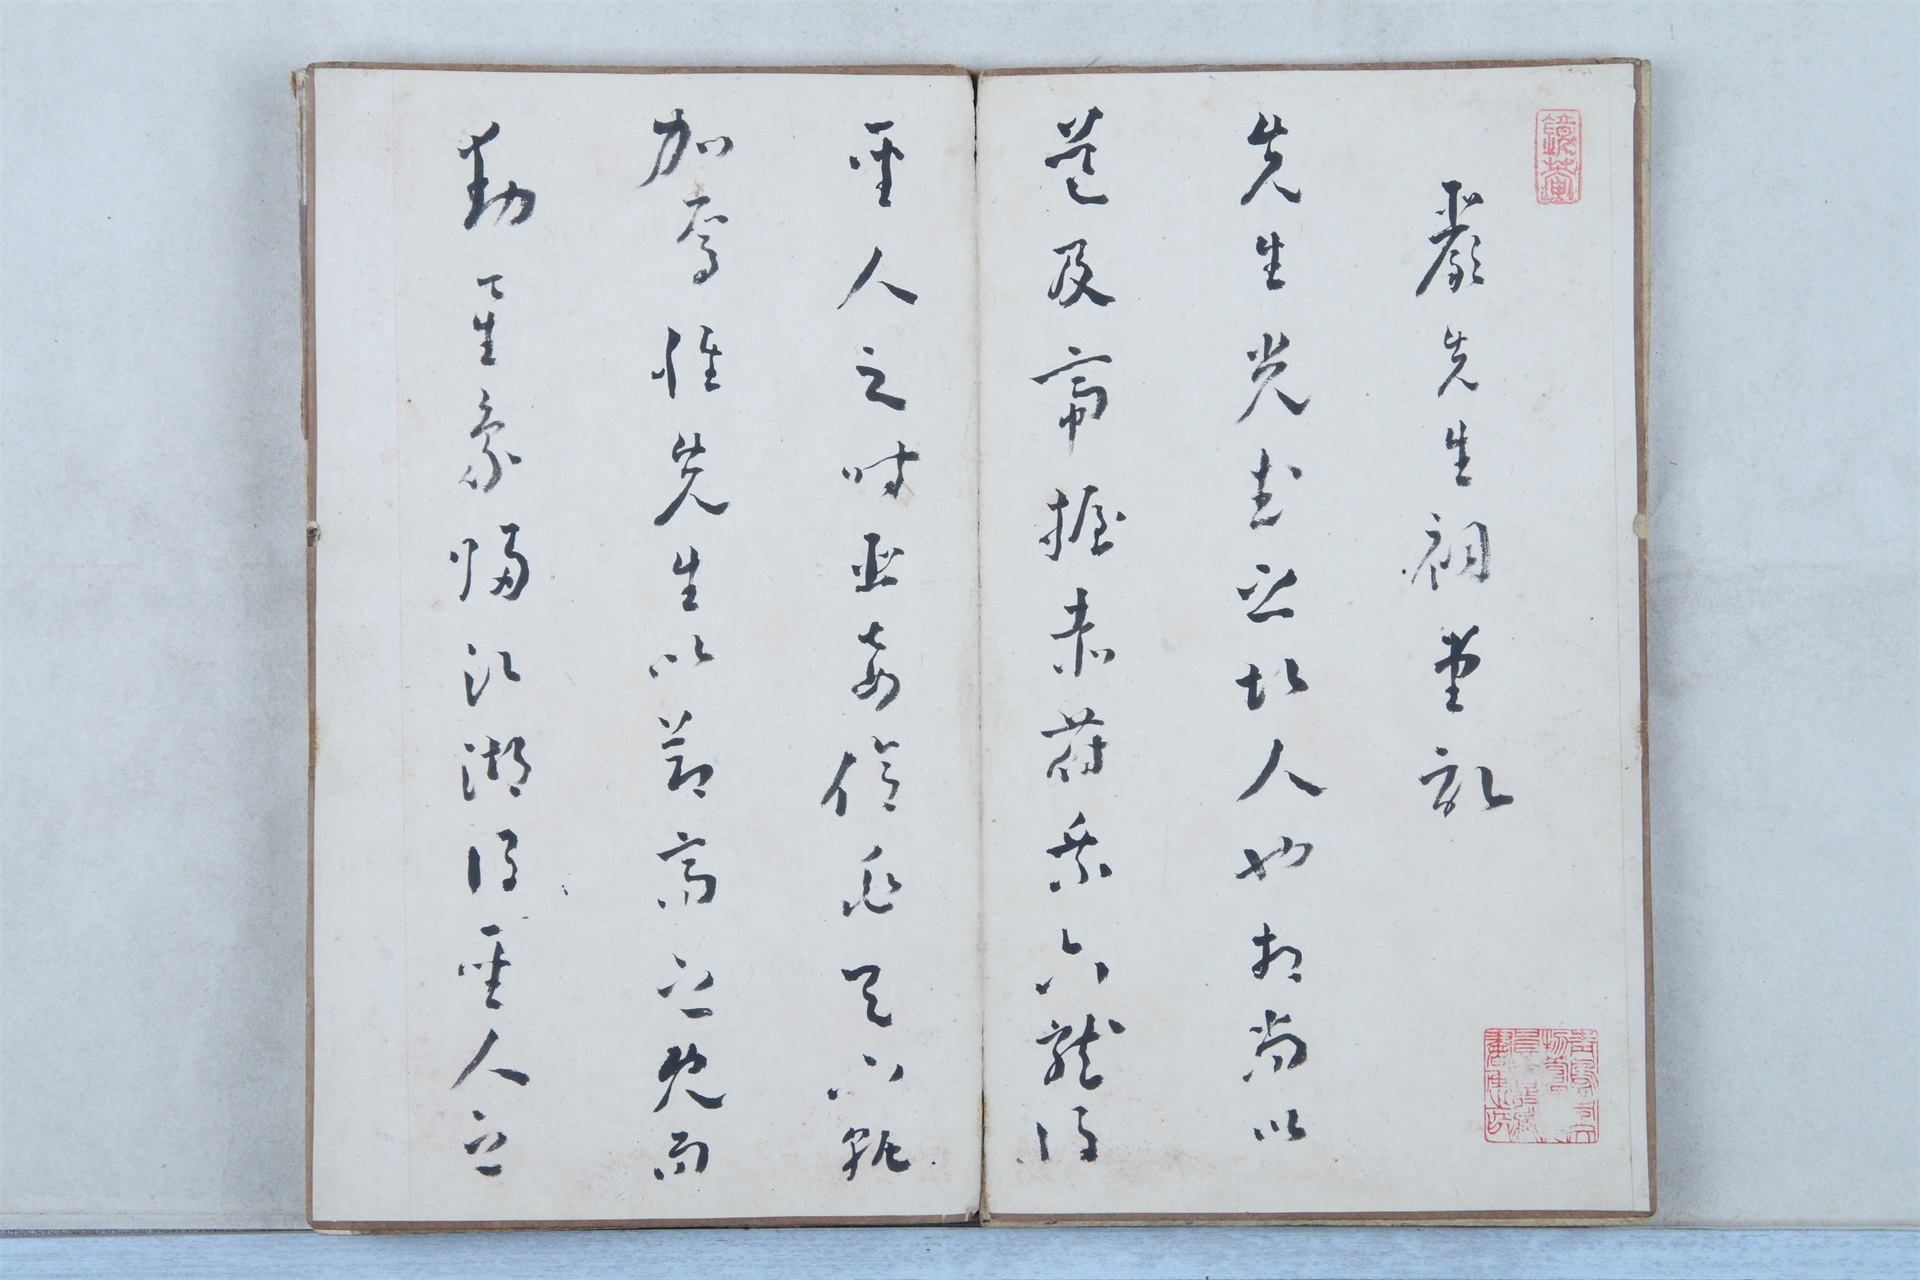 嚴先生祠堂記
先生光武之故人也相尚以
道及帝握赤符乘六龍得
聖人之時臣妾億兆天下孰
加焉惟先生以節高之既而
動星象歸江湖得聖人之